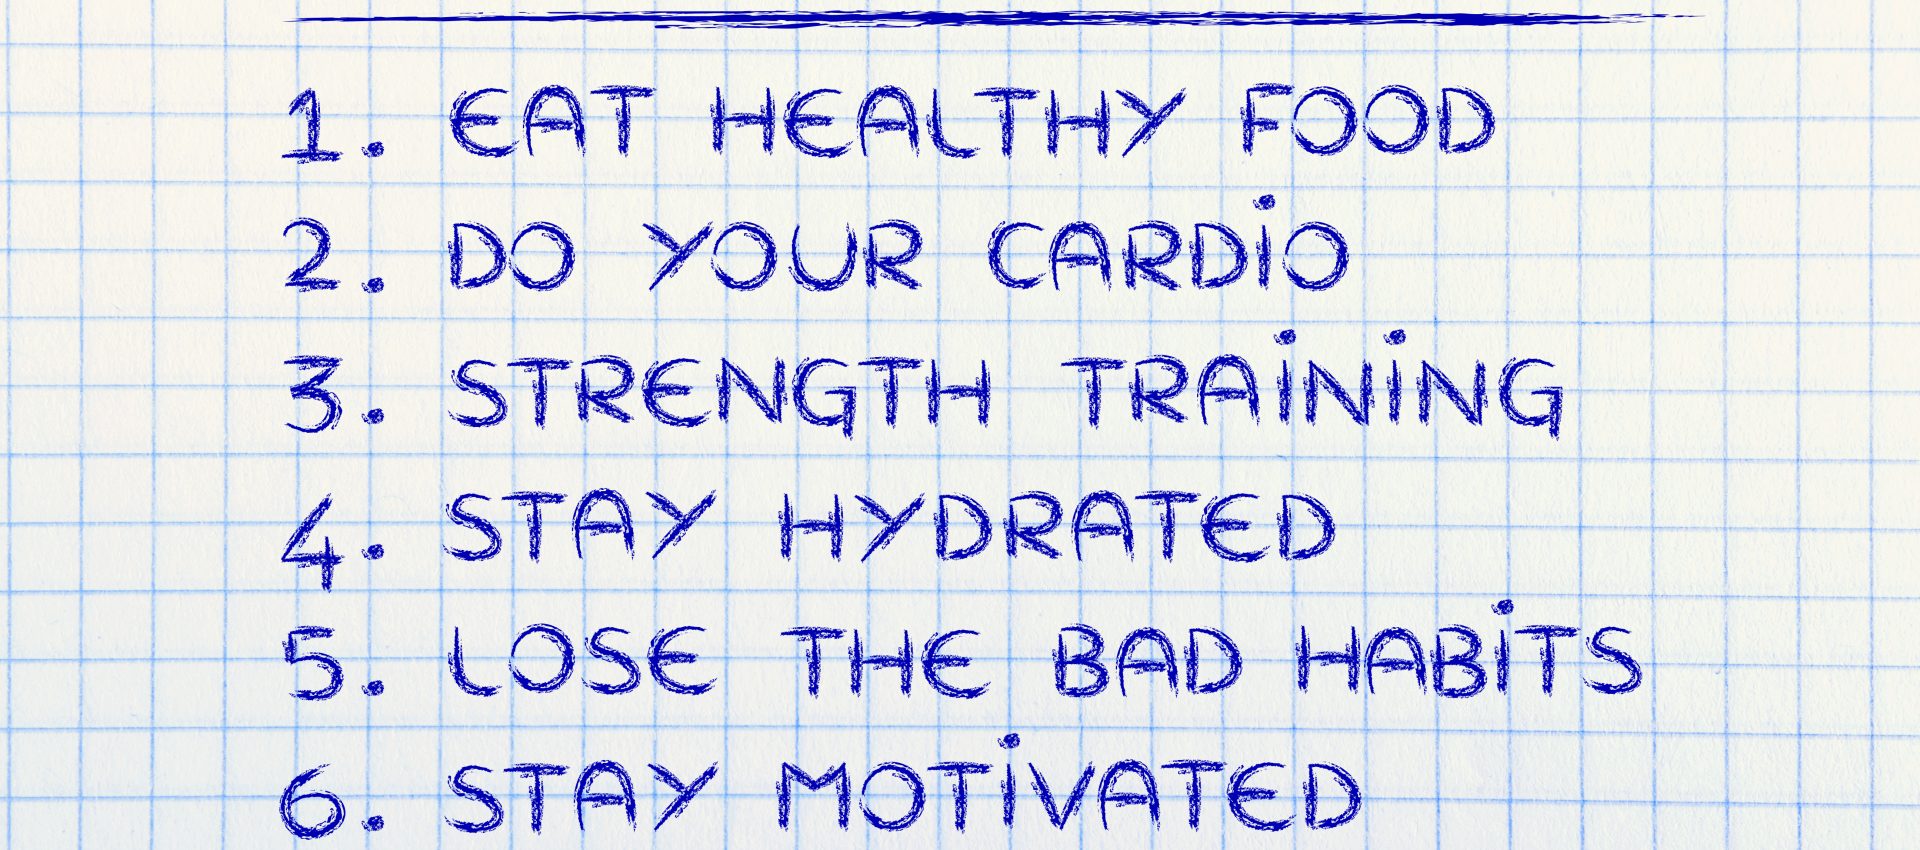 1. EAT HEALTHY FOOD
2. DO YOUR CARDiO
3. STRENGTH TRAiNiNG
4. STAY HYDRATED
5. LOSE THE BAD HABiTS
6. STAY MOTiVATED